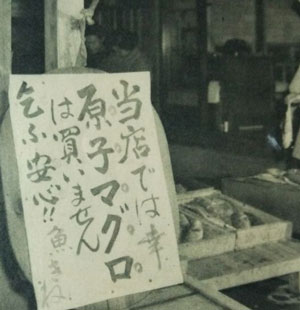 当店では幸
原子マグロ
は買いません
乞ふ安心!!
魚